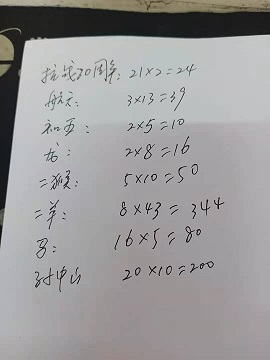 抗战70周年: 21×2=24
航天: 3×13=39
和五: 2×5=10
龙: 2×8=16
二猴: 5×10=50
二羊: 8×43=344
马: 16×5=80
对中山 20×10=200